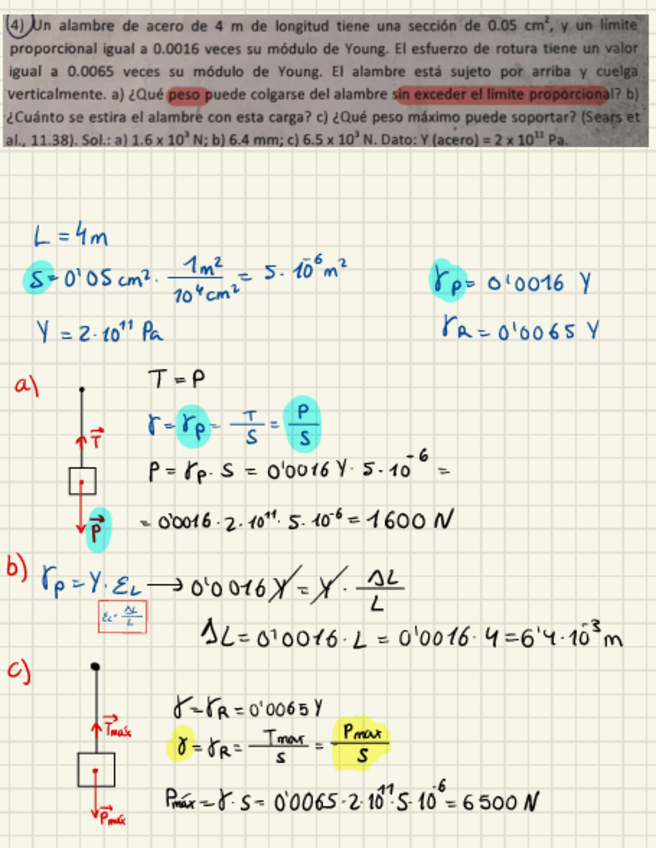 (4) Un alambre de acero de 4 m de longitud tiene una sección de 0.05 cm², y un límite
proporcional igual a 0.0016 veces su módulo de Young. El esfuerzo de rotura tiene un valor
igual a 0.0065 veces su módulo de Young. El alambre está sujeto por arriba y cuelga
verticalmente. a) ¿Qué peso puede colgarse del alambre sin exceder el límite proporcional? b)
¿Cuánto se estira el alambre con esta carga? c) ¿Qué peso máximo puede soportar? (Sears et
al., 11.38). Sol.: a) 1.6 x 10³ N; b) 6.4 mm; c) 6.5 x 10³ N. Dato: Y (acero) = 2 x 10¹¹ Pa.
L = 4m
S = 0'05 cm² · 1m² / 10⁴cm² = 5·10⁻⁶ m²
γp = 0'0016 Y
Y = 2·10¹¹ Pa
γR = 0'0065 Y
a)
T = P
γ = γp = T/S = P/S
T⃗
P = γp · S = 0'0016 Y · 5·10⁻⁶ =
P⃗
= 0'0016 · 2·10¹¹ · 5·10⁻⁶ = 1600 N
b) γp = Y · εL → 0'0016 Y = Y · ΔL/L
εL = ΔL/L
ΔL = 0'0016 · L = 0'0016 · 4 = 6'4·10⁻³ m
c)
γ = γR = 0'0065 Y
T⃗máx
γ = γR = Tmax/S = Pmax/S
P⃗máx
Pmáx = γ · S = 0'0065 · 2·10¹¹ · 5·10⁻⁶ = 6500 N